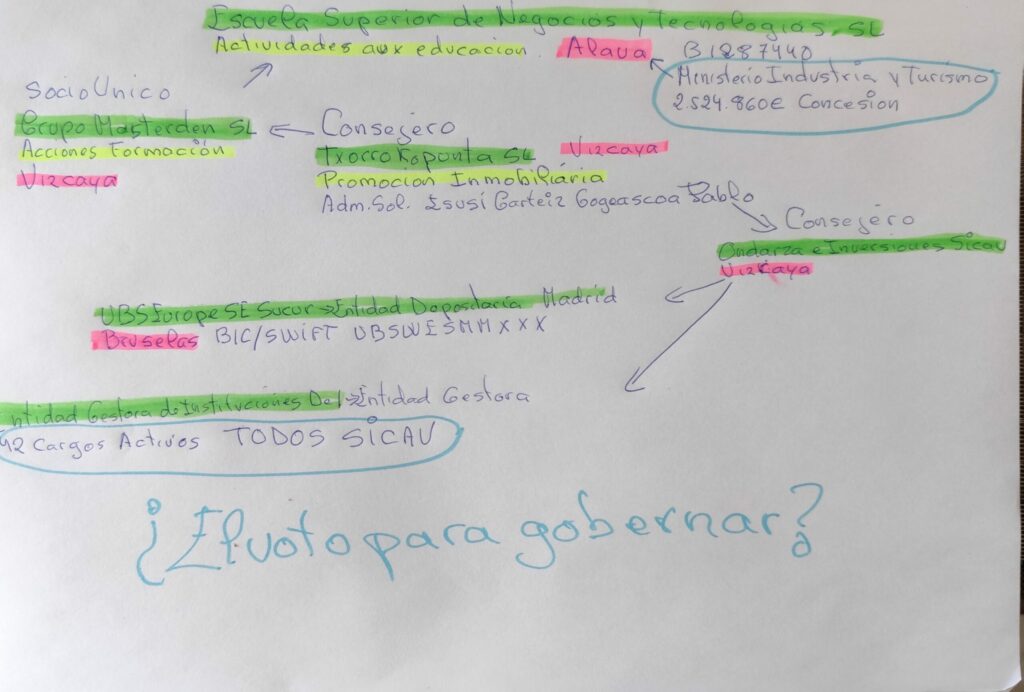 Escuela Superior de Negocios y Tecnologias, SL
Actividades aux educacion. Alava B1287440
Ministerio Industria y Turismo
2.524.860€ Concesion
Socio Unico
Grupo Masterden SL
Acciones Formación
Vizcaya
Consejero
Txorrokopunta SL Vizcaya
Promocion Inmobiliária
Adm. Sol. Esusi Garteiz Gogeascoa Pablo
Consejero
Ondarza e Inversiones Sicav
Vizkaya
UBS Europe SE Sucur → Entidad Depositaria Madrid
Bruselas BIC/SWIFT UBSWESMMXXX
Entidad Gestora de Instituciones De I → Entidad Gestora
42 Cargos Activos TODOS SICAV
¿El voto para gobernar?